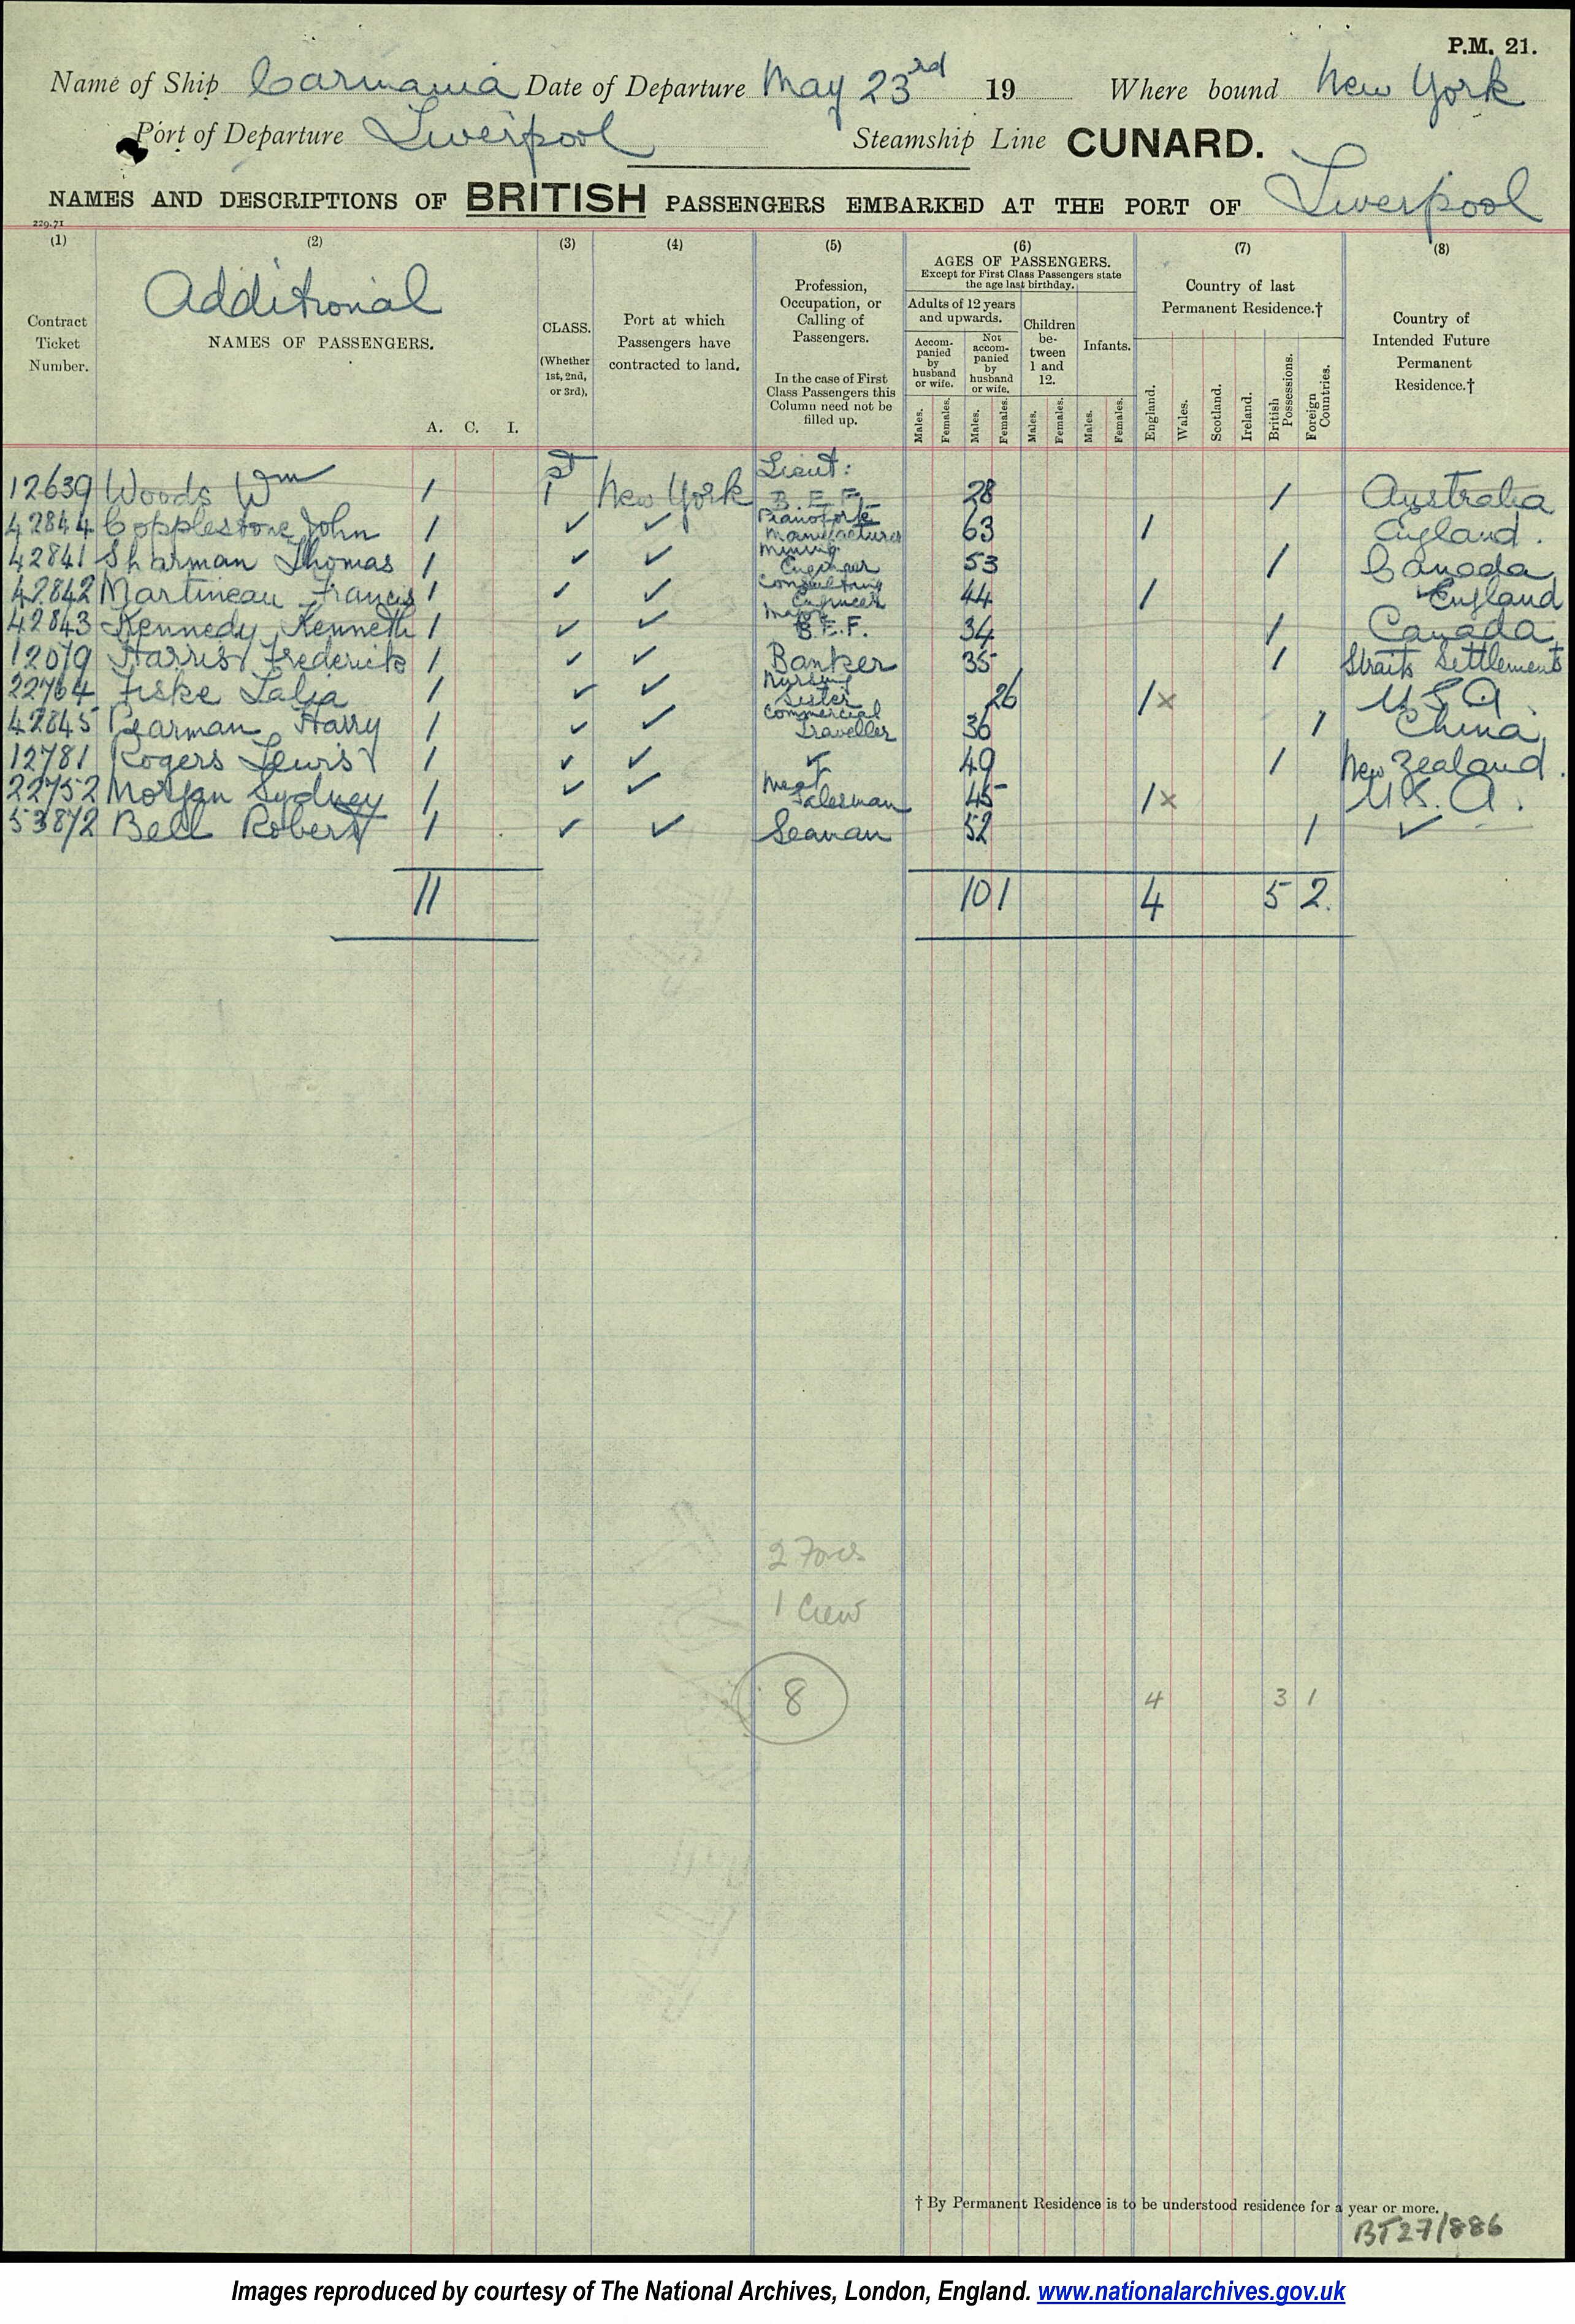 P.M. 21.
Name of Ship Carmania Date of Departure May 23rd 19 Where bound New York
Port of Departure Liverpool Steamship Line CUNARD.
NAMES AND DESCRIPTIONS OF BRITISH PASSENGERS EMBARKED AT THE PORT OF Liverpool
229.71
(1) (2) (3) (4) (5) (6) (7) (8)
Contract Ticket Number.
Additional
NAMES OF PASSENGERS.
A. C. I.
CLASS.
(Whether 1st, 2nd, or 3rd).
Port at which Passengers have contracted to land.
Profession, Occupation, or Calling of Passengers.
In the case of First Class Passengers this Column need not be filled up.
AGES OF PASSENGERS.
Except for First Class Passengers state the age last birthday.
Adults of 12 years and upwards.
Accompanied by husband or wife.
Not accompanied by husband or wife.
Children between 1 and 12.
Infants.
Males. Females. Males. Females. Males. Females. Males. Females.
Country of last Permanent Residence.†
England. Wales. Scotland. Ireland. British Possessions. Foreign Countries.
Country of Intended Future Permanent Residence.†
12639 Woods Wm 1 1st New York Lieut: B.E.F. 28 1 Australia
42844 Copplestone John 1 ✓ ✓ Pianoforte Manufacturer 63 1 England.
42841 Sharman Thomas 1 ✓ ✓ Mining Engineer 53 1 Canada
42842 Martineau Francis 1 ✓ ✓ Consulting Engineer 44 1 England
42843 Kennedy Kenneth 1 ✓ ✓ Major B.E.F. 34 1 Canada
12079 Harris Frederick 1 ✓ ✓ Banker 35 1 Straits Settlements
22764 Fiske Lalia 1 ✓ ✓ Nursing Sister 26 1 x U.S.A.
42845 Pearman Harry 1 ✓ ✓ Commercial Traveller 36 1 China
12781 Rogers Lewis 1 ✓ ✓ ✓ 49 1 New Zealand.
22752 Morgan Sydney 1 ✓ ✓ Meat Salesman 45 1 x U.S.A.
53872 Bell Robert 1 ✓ ✓ Seaman 52 1 ✓
11 10 1 4 5 2.
2 Forces
1 Crew
8 4 3 1
† By Permanent Residence is to be understood residence for a year or more.
BT27/886
Images reproduced by courtesy of The National Archives, London, England. www.nationalarchives.gov.uk